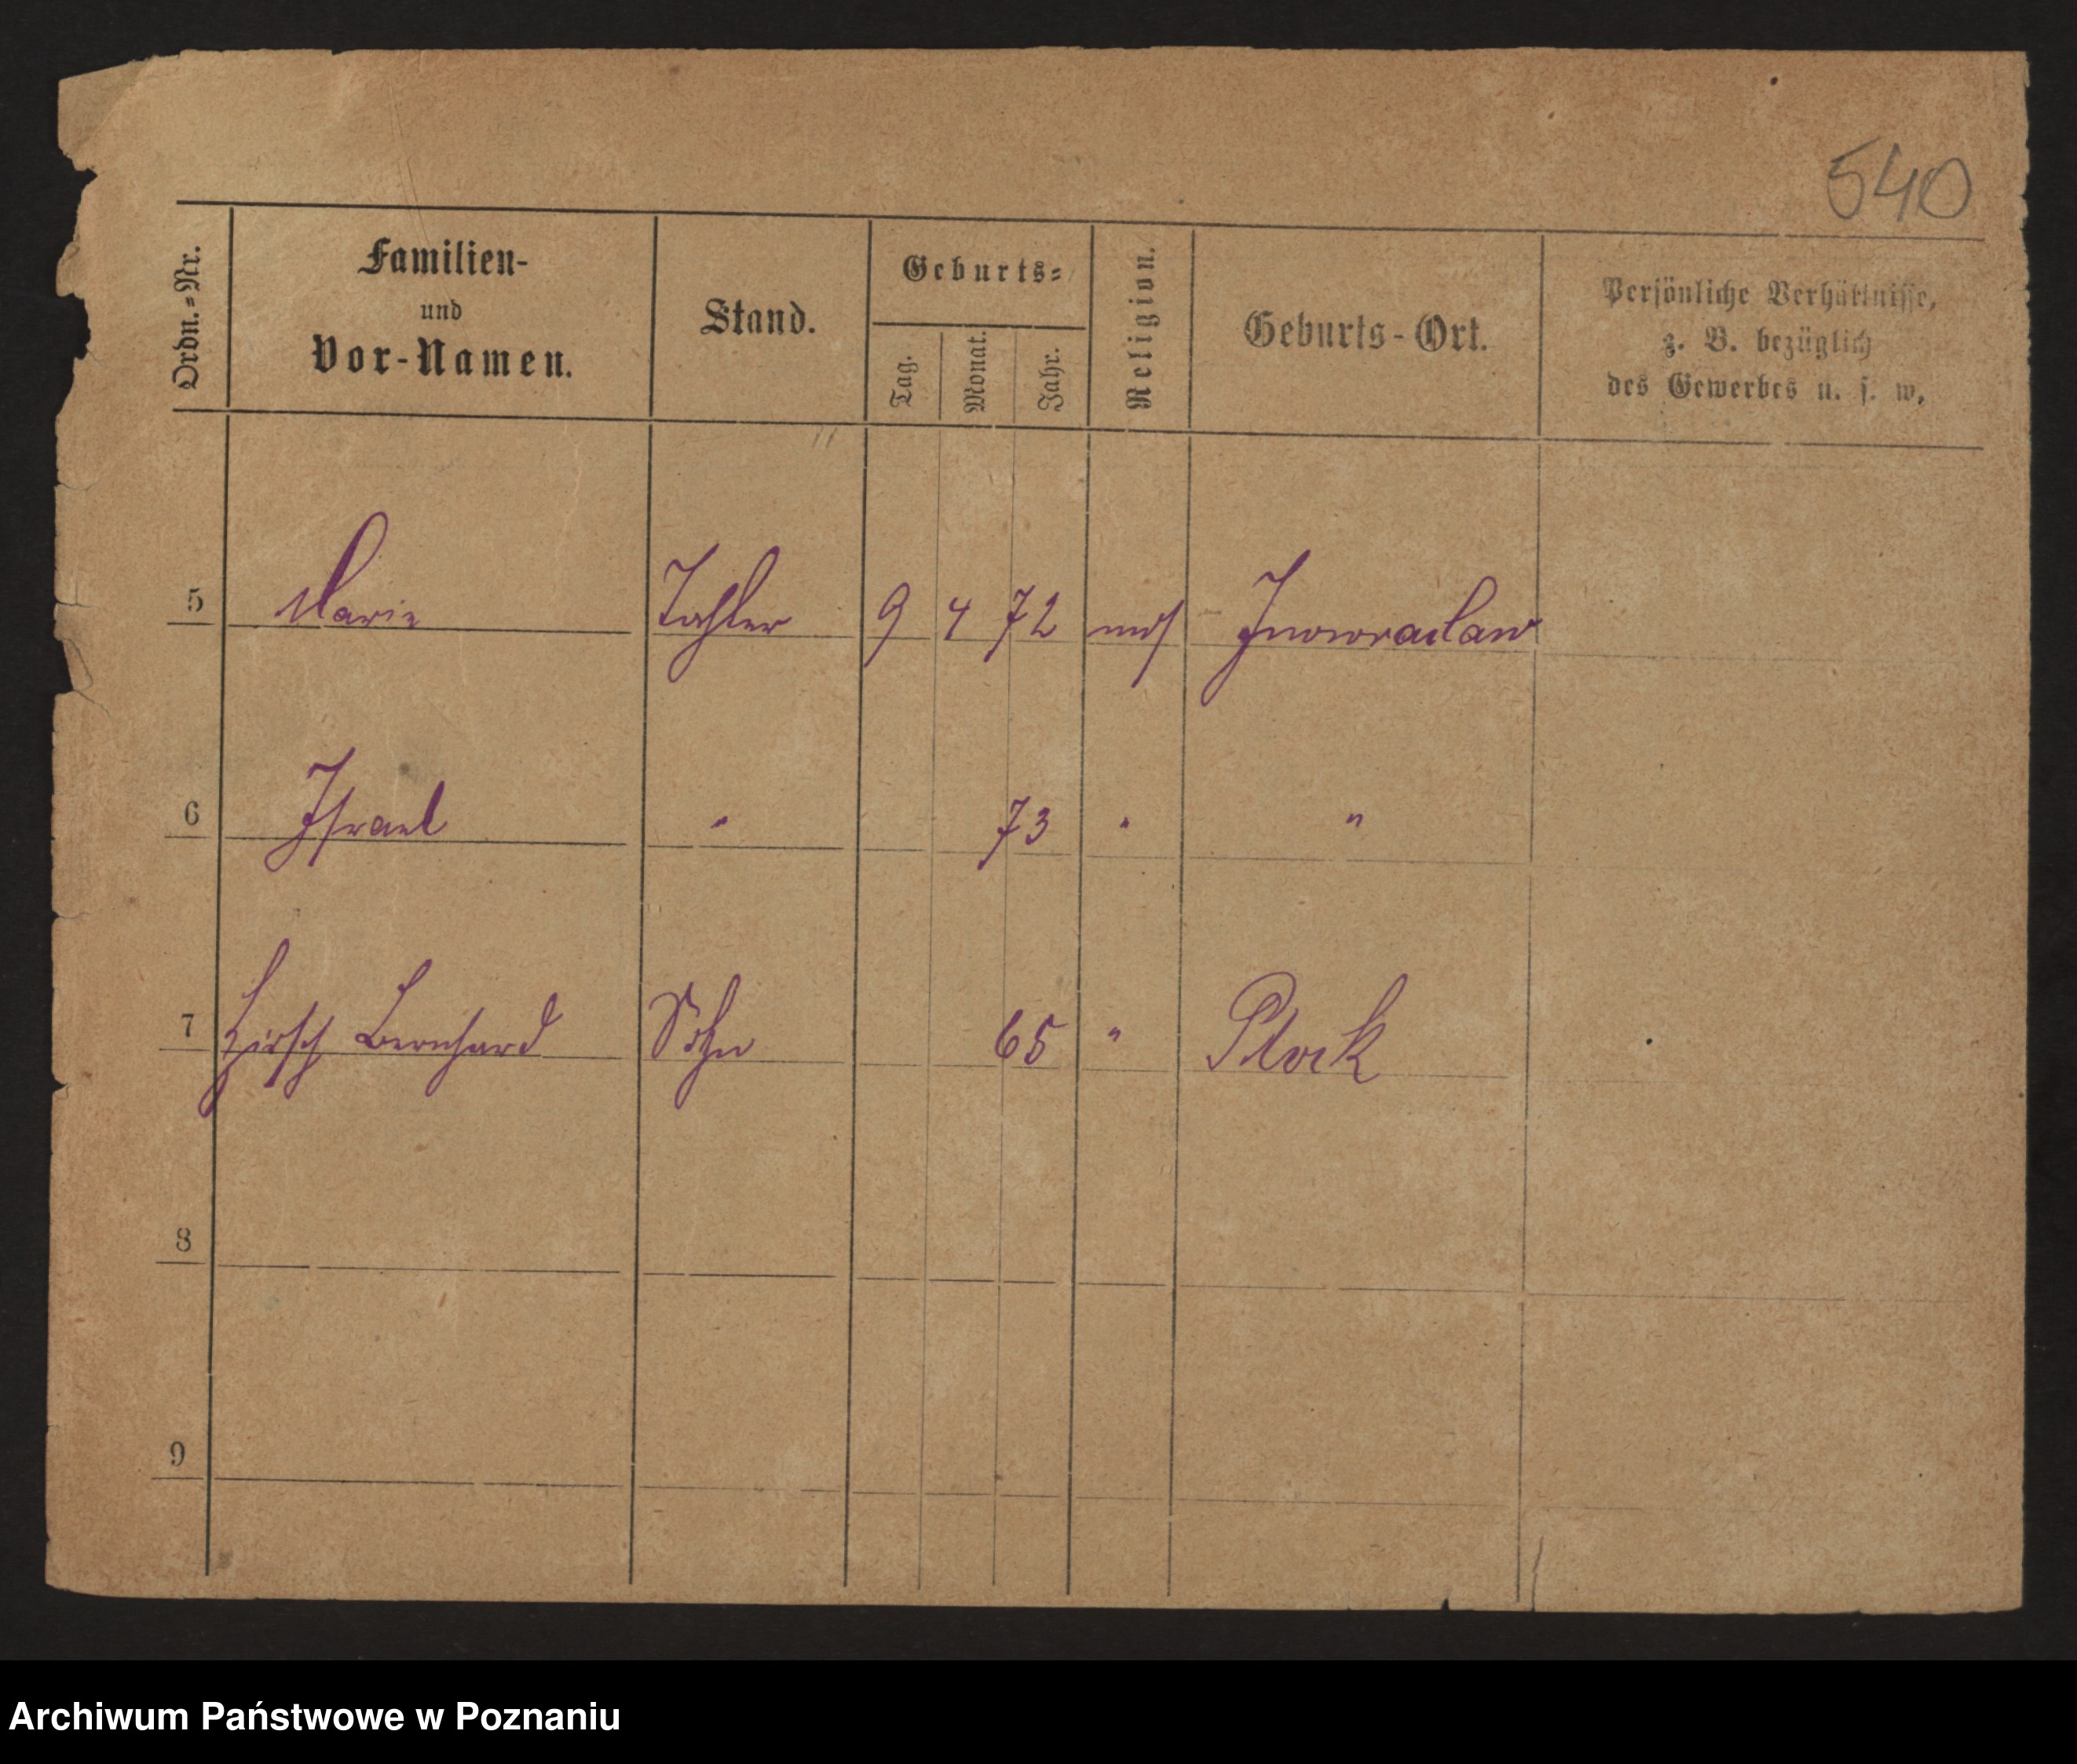 540
Ordn.=Nr. Familien- und Vor-Namen. Stand. Geburts= Tag. Monat. Jahr. Religion. Geburts-Ort. Persönliche Verhältnisse, z. B. bezüglich des Gewerbes u. s. w.
5 Marie 9 4 72 mos Inowraclaw
6 Israel " 73 " "
7 Hirsch Bernhard Sohn 65 " Plock
8
9
Archiwum Państwowe w Poznaniu